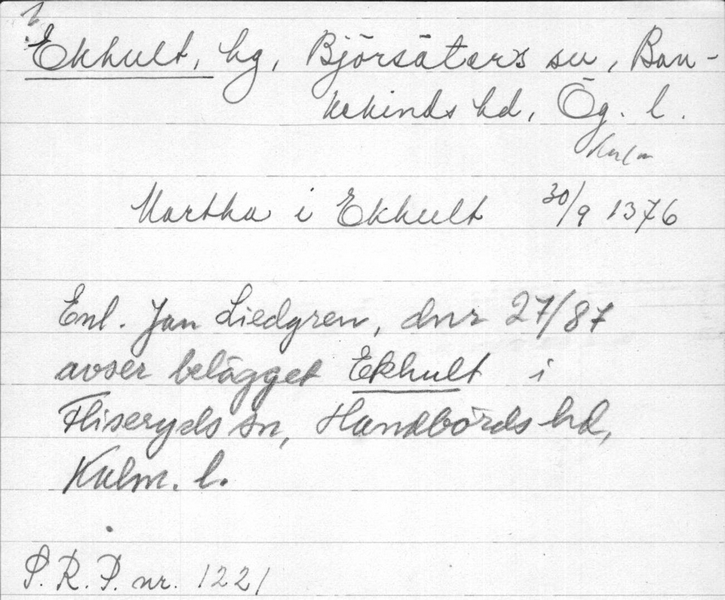 Ekhult, hg, Björsäters sn, Ban-
kekinds hd, Ög. l.
Martha i Ekhult 30/9 1376
Enl. Jan Liedgren, dnr 27/87
avser belägget Ekhult i
Fliseryds sn, Handbörds hd,
Kalm. l.
S. R. P. nr. 1221